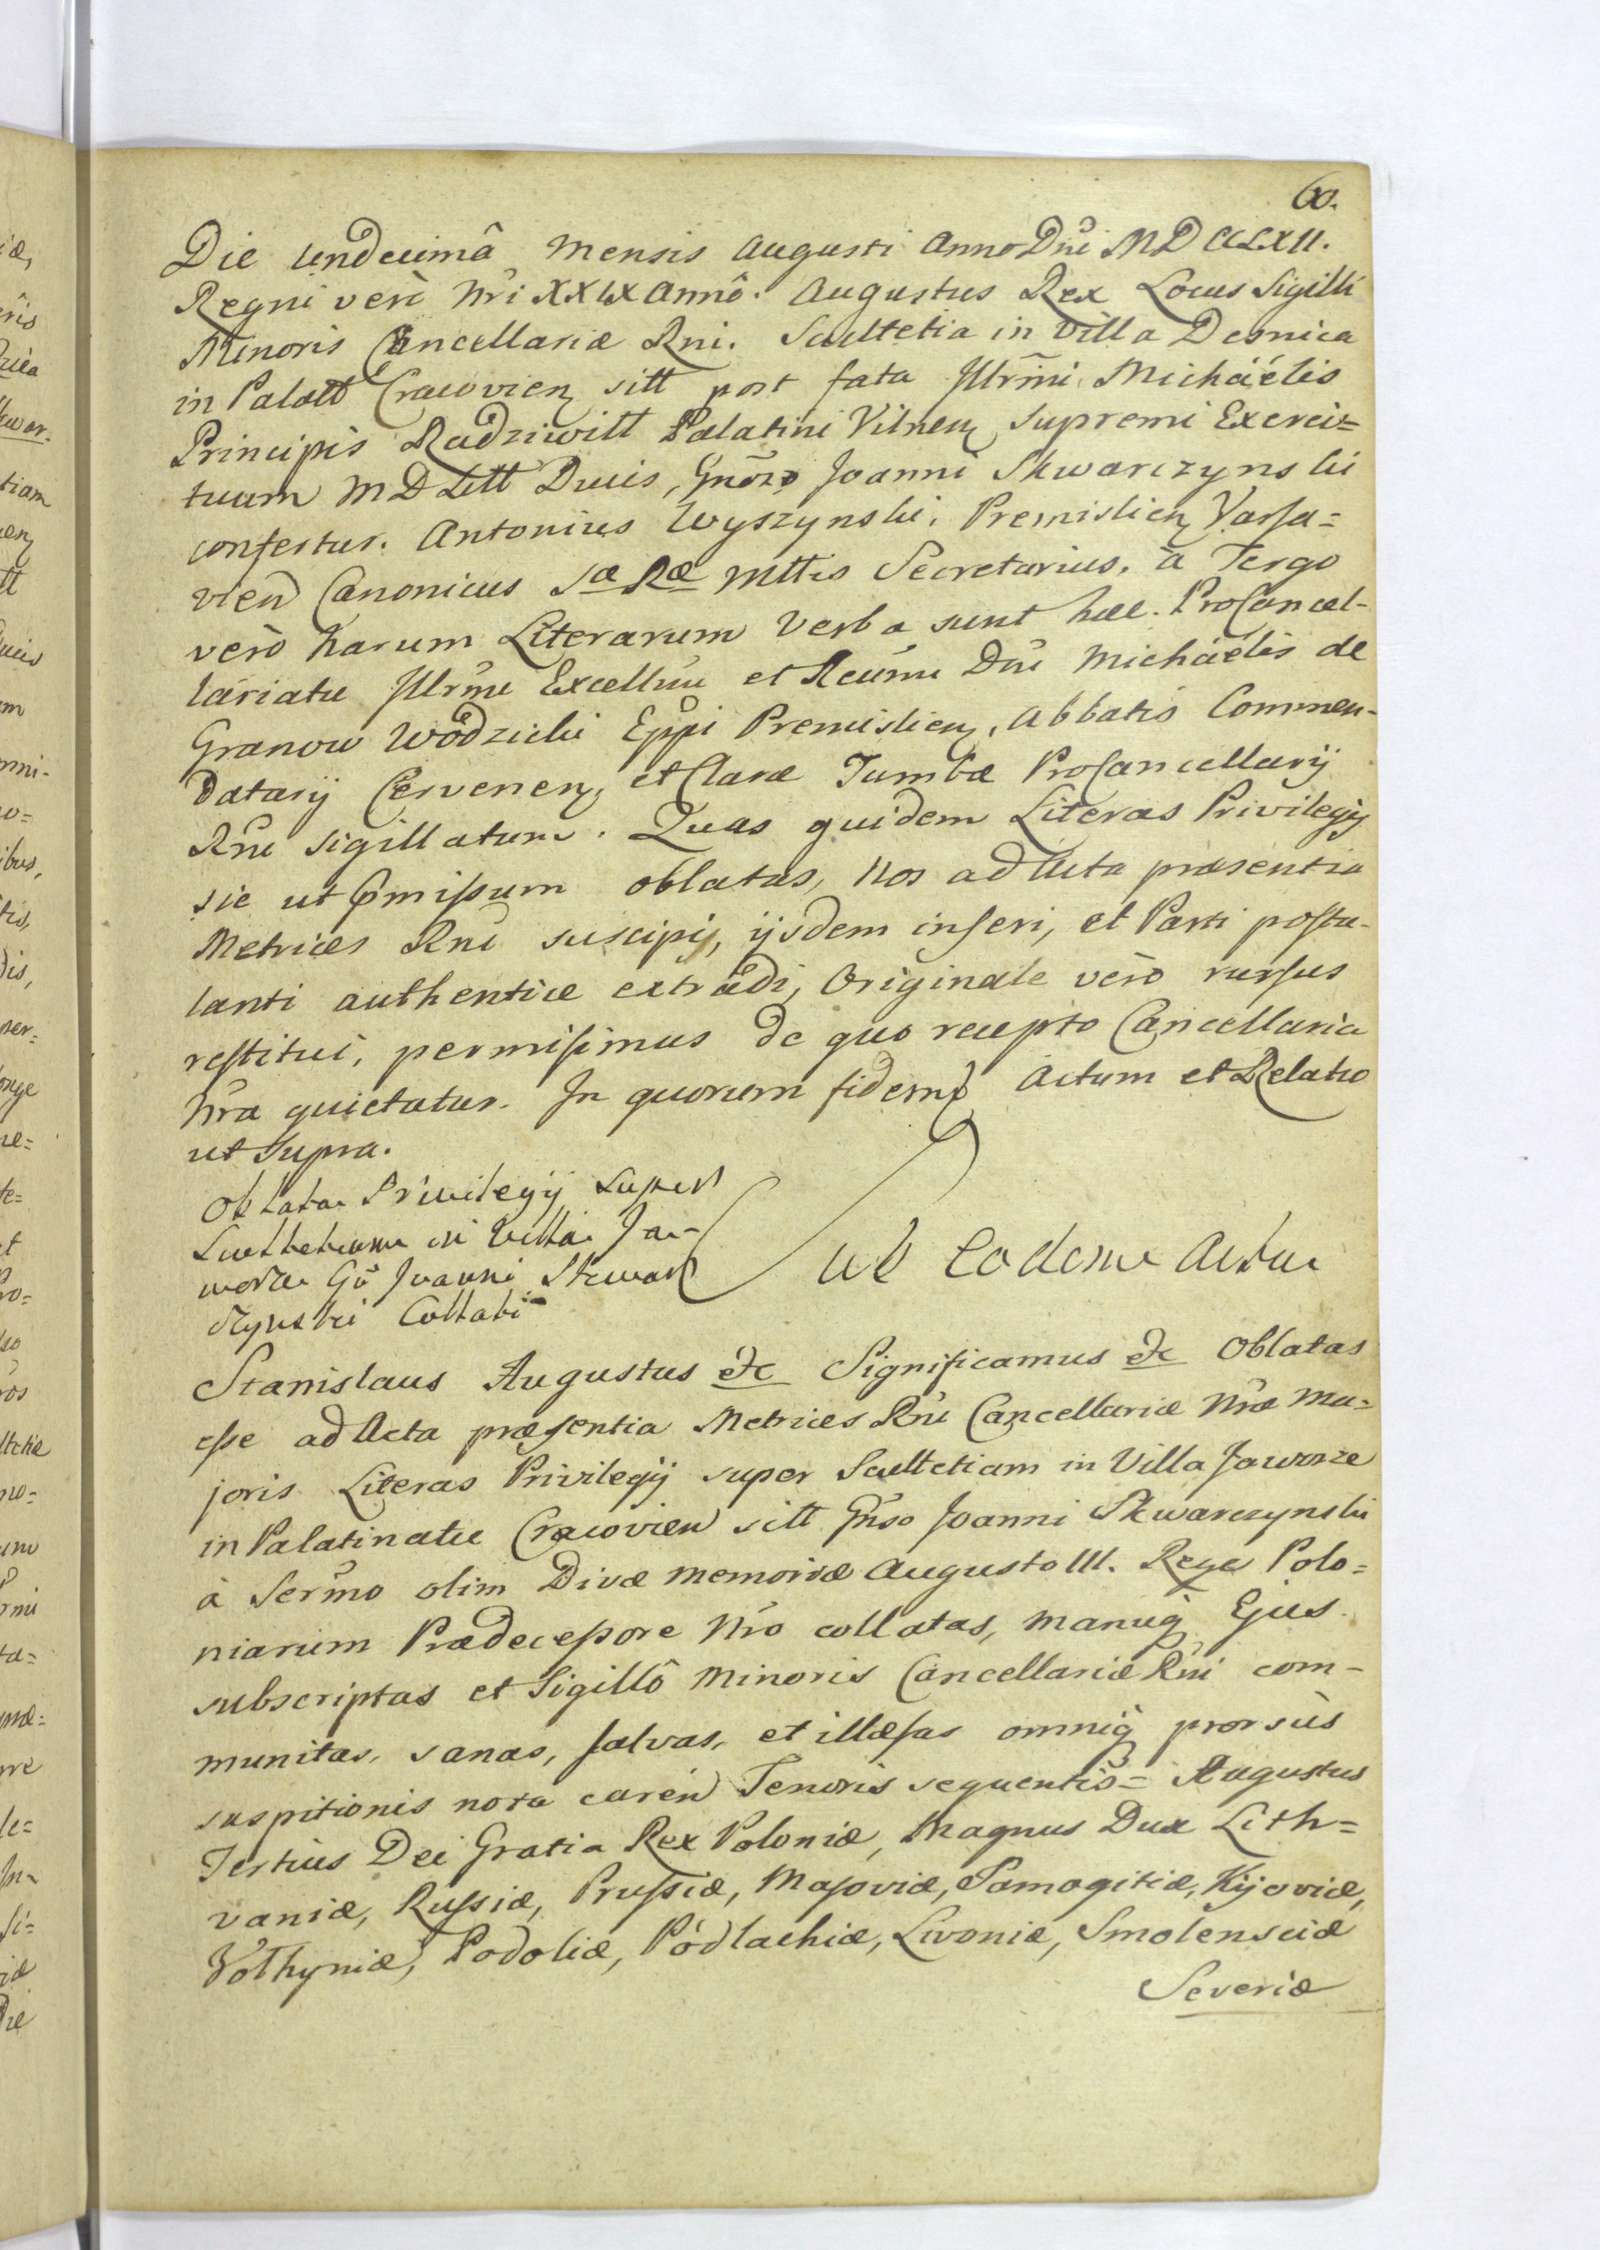 60.
Die undecimâ Mensis Augusti Anno Dni MDCCLXII.
Regni verò Nri XXIX Annô. Augustus Rex Locus Sigilli
Minoris Cancellariæ Rni. Scultetia in Villa Desnica
in Palatt Cracovien sitt post fata Illrmi Michäélis
Principis Radziwill Palatini Vilnen supremi Exerci=
tuum MD Litt Ducis, Gnoso Joanni Skwarczynski
confertur. Antonius Wyszynski, Premislien Varsa=
vien Canonicus Sæ Ræ Mttis Secretarius, à Tergo
verò harum Literarum Verba sunt hæc. ProCancel-
lariatu Illrmi Excellmi et Reverendmi Dni Michäélis de
Granow Wodzicki Eppi Premislien, Abbatis Commen-
datarij Cervenen, et Claræ Tumbæ ProCancellarij
Rni sigillatum. Quas quidem Literas Privilegij
sic ut pmissum oblatas, Nos ad Acta præsentia
Metrices Rni suscipi, ijsdem inseri, et Parti postu-
lanti authenticè extradi, Originale verò rursus
restitui, permisimus de quo recepto Cancellaria
Nra quietatur. In quorum fidem Actum et Relatio
ut supra.
Oblata Privilegij super
Scultetiam in Villa Ja-
worze Gō Joanni Skwar
czynski Collati
Ut eodem Actu
Stanislaus Augustus etc Significamus etc Oblatas
esse ad Acta præsentia Metrices Rni Cancellariæ Nræ Ma=
joris Literas Privilegij super Scultetiam in Villa Jaworze
in Palatinatu Cracovien sitt Gnso Joanni Skwarczynski
à Sermo olim Divæ Memoriæ Augusto III. Rege Polo=
niarum Prædecessore Nro collatas, manuq Ejus
subscriptas et Sigillô Minoris Cancellariæ Rni com-
munitas, sanas, salvas, et illæsas omniq prorsùs
suspitionis nota caren Tenoris sequentis= Augustus
Tertius Dei Gratia Rex Poloniæ, Magnus Dux Lith=
vaniæ, Russiæ, Prussiæ, Masoviæ, Samogitiæ, Kijoviæ,
Volhyniæ, Podoliæ, Podlachiæ, Livoniæ, Smolensciæ
Severiæ